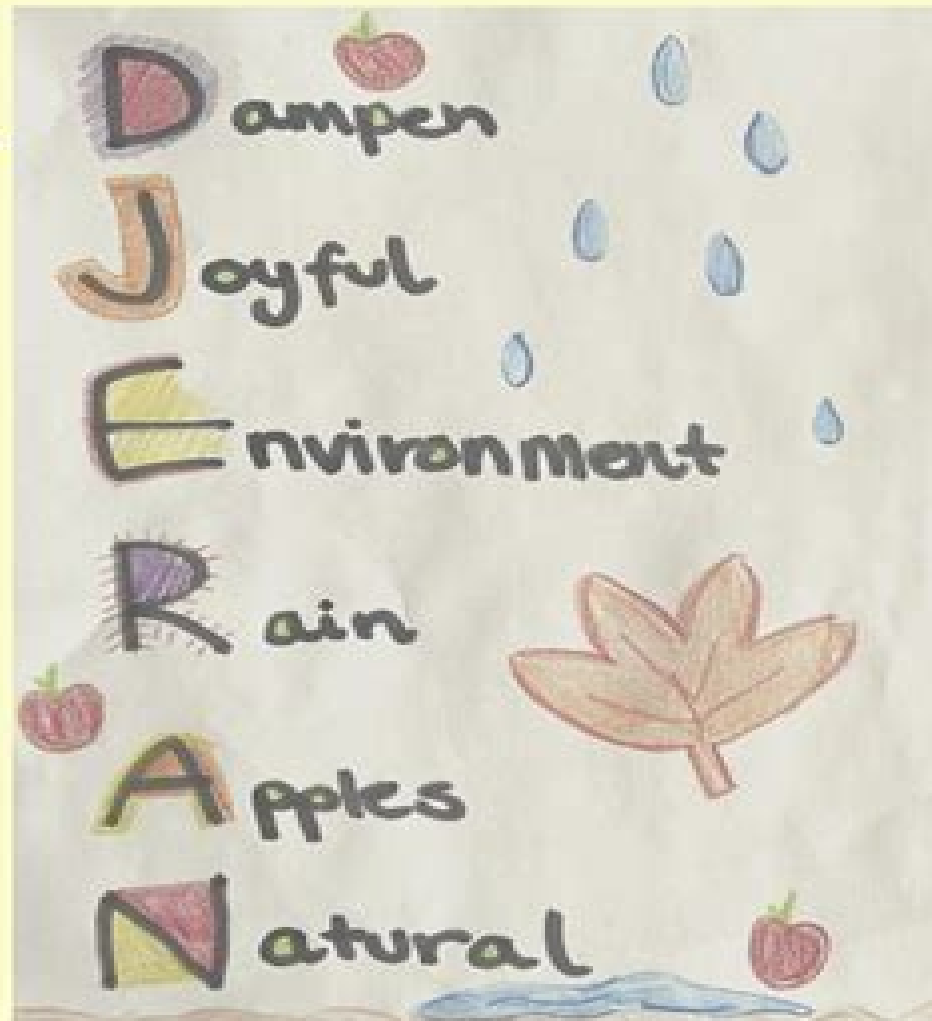 Dampen
Joyful
Environment
Rain
Apples
Natural